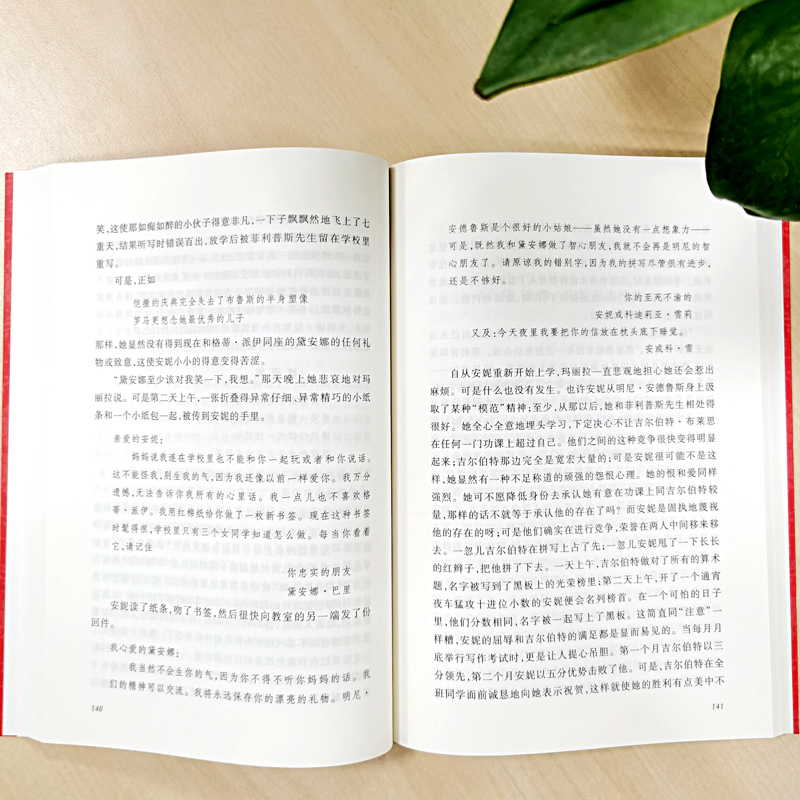 笑,这使那如痴如醉的小伙子得意非凡,一下子飘飘然地飞上了七
重天,结果听写时错误百出,放学后被菲利普斯先生留在学校里
重写。
可是,正如
恺撒的庆典完全失去了布鲁斯的半身塑像
罗马更想念她最优秀的儿子
那样,她显然没有得到现在和格蒂·派伊同座的黛安娜的任何礼
物或致意,这使安妮小小的得意变得苦涩。
“黛安娜至少该对我笑一下,我想。”那天晚上她悲哀地对玛
丽拉说。可是第二天上午,一张折叠得异常仔细、异常精巧的小纸
条和一个小纸包一起,被传到安妮的手里。
亲爱的安妮:
妈妈说我连在学校里也不能和你一起玩或者和你说话。
这不能怪我,别生我的气,因为我还像以前一样爱你。我万分
遗憾,无法告诉你我所有的心里话。我一点儿也不喜欢格
蒂·派伊。我用红棉纸给你做了一枚新书签。现在这种书签
时髦得很,学校里只有三个女同学知道怎么做。每当你看着
它,请记住
你忠实的朋友
黛安娜·巴里
安妮读了纸条,吻了书签,然后很快向教室的另一端发了份
回件。
我心爱的黛安娜:
我当然不会生你的气,因为你不得不听你妈妈的话。我
们的精神可以交流。我将永远保存你的漂亮的礼物。明尼·
140
安德鲁斯是个很好的小姑娘——虽然她没有一点想象力——
可是,既然我和黛安娜做了智心朋友,我就不会再是明尼的智
心朋友了。请原谅我的错别字,因为我的拼写尽管很有进步,
还是不够好。
你的至死不渝的
安妮或科迪莉亚·雪莉
又及:今天夜里我要把你的信放在枕头底下睡觉。
安或科·雪
自从安妮重新开始上学,玛丽拉一直悲观地担心她还会惹出
麻烦。可是什么也没有发生。也许安妮从明尼·安德鲁斯身上汲
取了某种“模范”精神;至少,从那以后,她和菲利普斯先生相处得
很好。她全心全意地埋头学习,下定决心不让吉尔伯特·布莱思
在任何一门功课上超过自己。他们之间的这种竞争很快变得明显
起来;吉尔伯特那边完全是宽宏大量的;可是安妮很可能不是这
样,她显然有一种不足称道的顽强的怨恨心理。她的恨和爱同样
强烈。她可不愿降低身份去承认她有意在功课上同吉尔伯特较
量,那样的话不就等于承认他的存在了吗?而安妮是固执地蔑视
他的存在的呀;可是他们确实在进行竞争,荣誉在两人中间移来移
去。一忽儿吉尔伯特在拼写上占了先;一忽儿安妮甩了一下长长
的红辫子,把他拼了下去。一天上午,吉尔伯特做对了所有的算术
题,名字被写到了黑板上的光荣榜里;第二天上午,开了一个通宵
夜车猛攻十进位小数的安妮便会名列榜首。在一个可怕的日子
里,他们分数相同,名字被一起写上了黑板。这简直同“注意”一
样糟,安妮的屈辱和吉尔伯特的满足都是显而易见的。当每月月
底举行写作考试时,更是让人提心吊胆。第一个月吉尔伯特以三
分领先,第二个月安妮以五分优势击败了他。可是,吉尔伯特在全
班同学面前诚恳地向她表示祝贺,这样就使她的胜利有点美中不
141